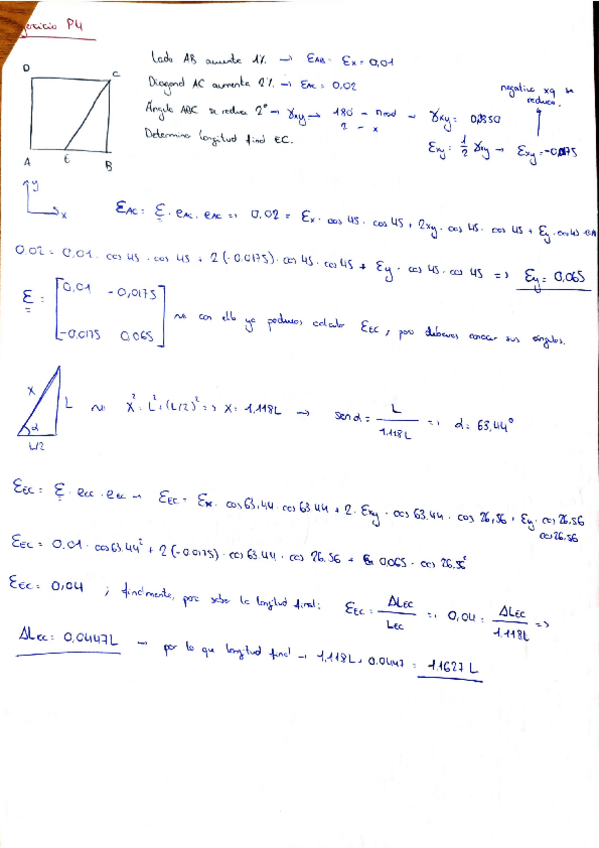 ejercicio P4
Lado AB aumenta 1% → ε_AB = ε_x = 0,01
Diagonal AC aumenta 2% → ε_AC = 0.02
Ángulo ABC se reduce 2° → γ_xy → 180 - π rad / 2 - x → γ_xy = 0,0350
negativo xq se reduce.
Determina longitud final EC.
ε_xy = 1/2 γ_xy → ε_xy = -0,0175
D
C
A
E
B
y
x
ε_AC = ε · e_AC · e_AC => 0.02 = ε_x · cos 45 · cos 45 + 2xy · cos 45 · cos 45 + ε_y · cos 45
0.02 = 0.01 · cos 45 · cos 45 + 2(-0.0175) · cos 45 · cos 45 + ε_y · cos 45 · cos 45 => ε_y = 0,065
ε = [0,01 -0,0175
-0.0175 0,065] → con ello ya podemos calcular ε_EC, pero debemos conocer sus ángulos.
x
L
α
L/2
→ x² = L² + (L/2)² => x = 1,118L → sen α = L / 1.118L => α = 63,44°
ε_EC = ε · e_EC · e_EC → ε_EC = ε_x · cos 63,44 · cos 63 44 + 2 · ε_xy · cos 63.44 · cos 26,56 + ε_y · cos 26.56 cos 26.56
ε_EC = 0.01 · cos 63.44² + 2(-0.0175) · cos 63.44 · cos 26.56 + 0.065 · cos 26.56²
ε_EC = 0,04 ; finalmente, para saber la longitud final: ε_EC = ΔL_EC / L_EC => 0,04 = ΔL_EC / 1.118L =>
ΔL_EC = 0,0447L → por lo que longitud final → 1,118L + 0.0447 = 1.1627 L